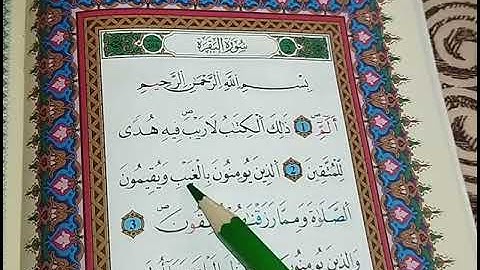 سُورَةُ الْبَقَرَةِ
بِسْمِ اللَّهِ الرَّحْمَٰنِ الرَّحِيمِ
أَلَٓمِّٓ 1 ذَٰلِكَ الْكِتَٰبُ لَا رَيْبَ فِيهِ هُدًى
لِّلْمُتَّقِينَ 2 الَّذِينَ يُومِنُونَ بِالْغَيْبِ وَيُقِيمُونَ
الصَّلَوٰةَ وَمِمَّا 3
وَالَّذِينَ يُومِنُونَ